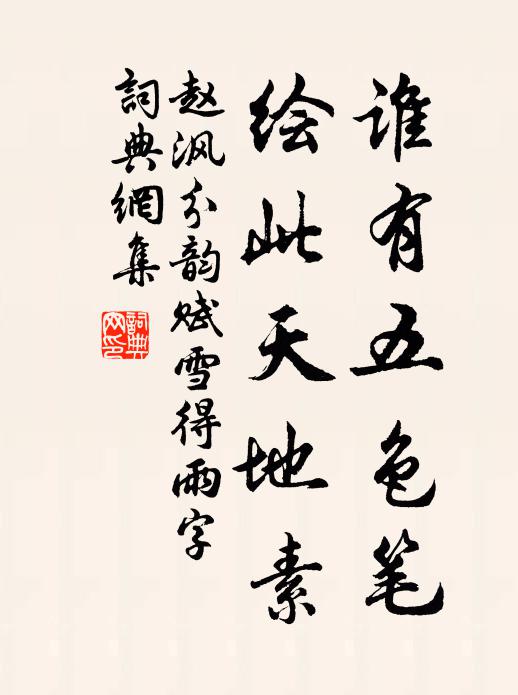 谁有五色笔
绘此天地素
赵沨分韵赋雪得雨字
词典網集
詞典网印